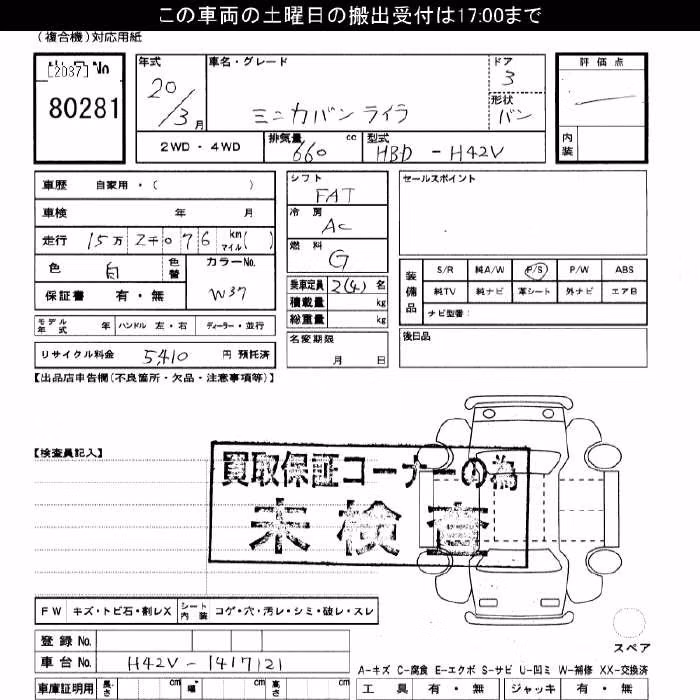 この車両の土曜日の搬出受付は17:00まで
(複合機)対応用紙
[2037] No
80281
年式 20/3月
車名・グレード ミニカバン ライラ
ドア 3
形状 バン
評価点
内装
2WD・4WD
排気量 660 cc
型式 HBD - H42V
車歴 自家用・( )
車検 年 月
走行 15万2千076 km マイル( )
色 白 色替
カラーNo. W37
保証書 有・無
モデル年式 年 ハンドル 左・右 ディーラー・並行
リサイクル料金 5,410 円 預託済
シフト FAT
冷房 AC
燃料 G
乗車定員 2(4) 名
積載量 kg
総重量 kg
名変期限 月 日
セールスポイント
装備品
S/R 純A/W P/S P/W ABS
純TV 純ナビ 革シート 外ナビ エアB
ナビ型番:
後日品
【出品店申告欄(不良箇所・欠品・注意事項等)】
【検査員記入】
買取保証コーナーの為
未検査
FW キズ・トビ石・割レX シート内装 コゲ・穴・汚レ・シミ・破レ・スレ
登録No.
車台No. H42V-1417121
車庫証明用 長さ cm 幅 cm 高さ cm
スペア
A-キズ C-腐食 E-エクボ S-サビ U-凹ミ W-補修 XX-交換済
工具 有・無 ジャッキ 有・無